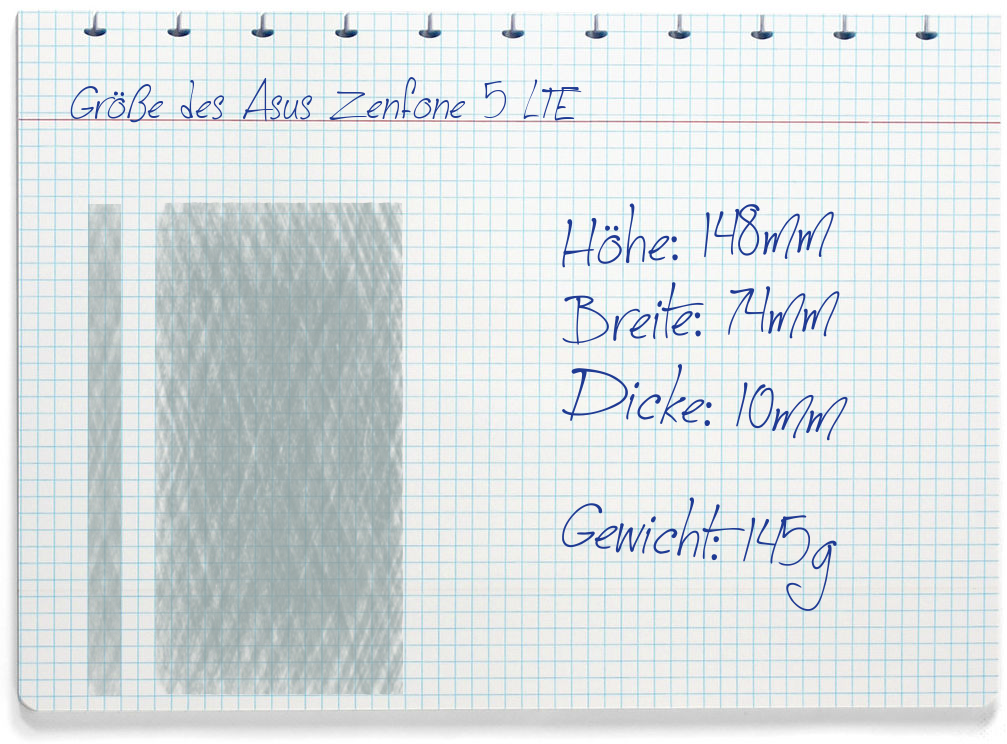 Größe des Asus Zenfone 5 LTE
Höhe: 148mm
Breite: 74mm
Dicke: 10mm
Gewicht: 145g